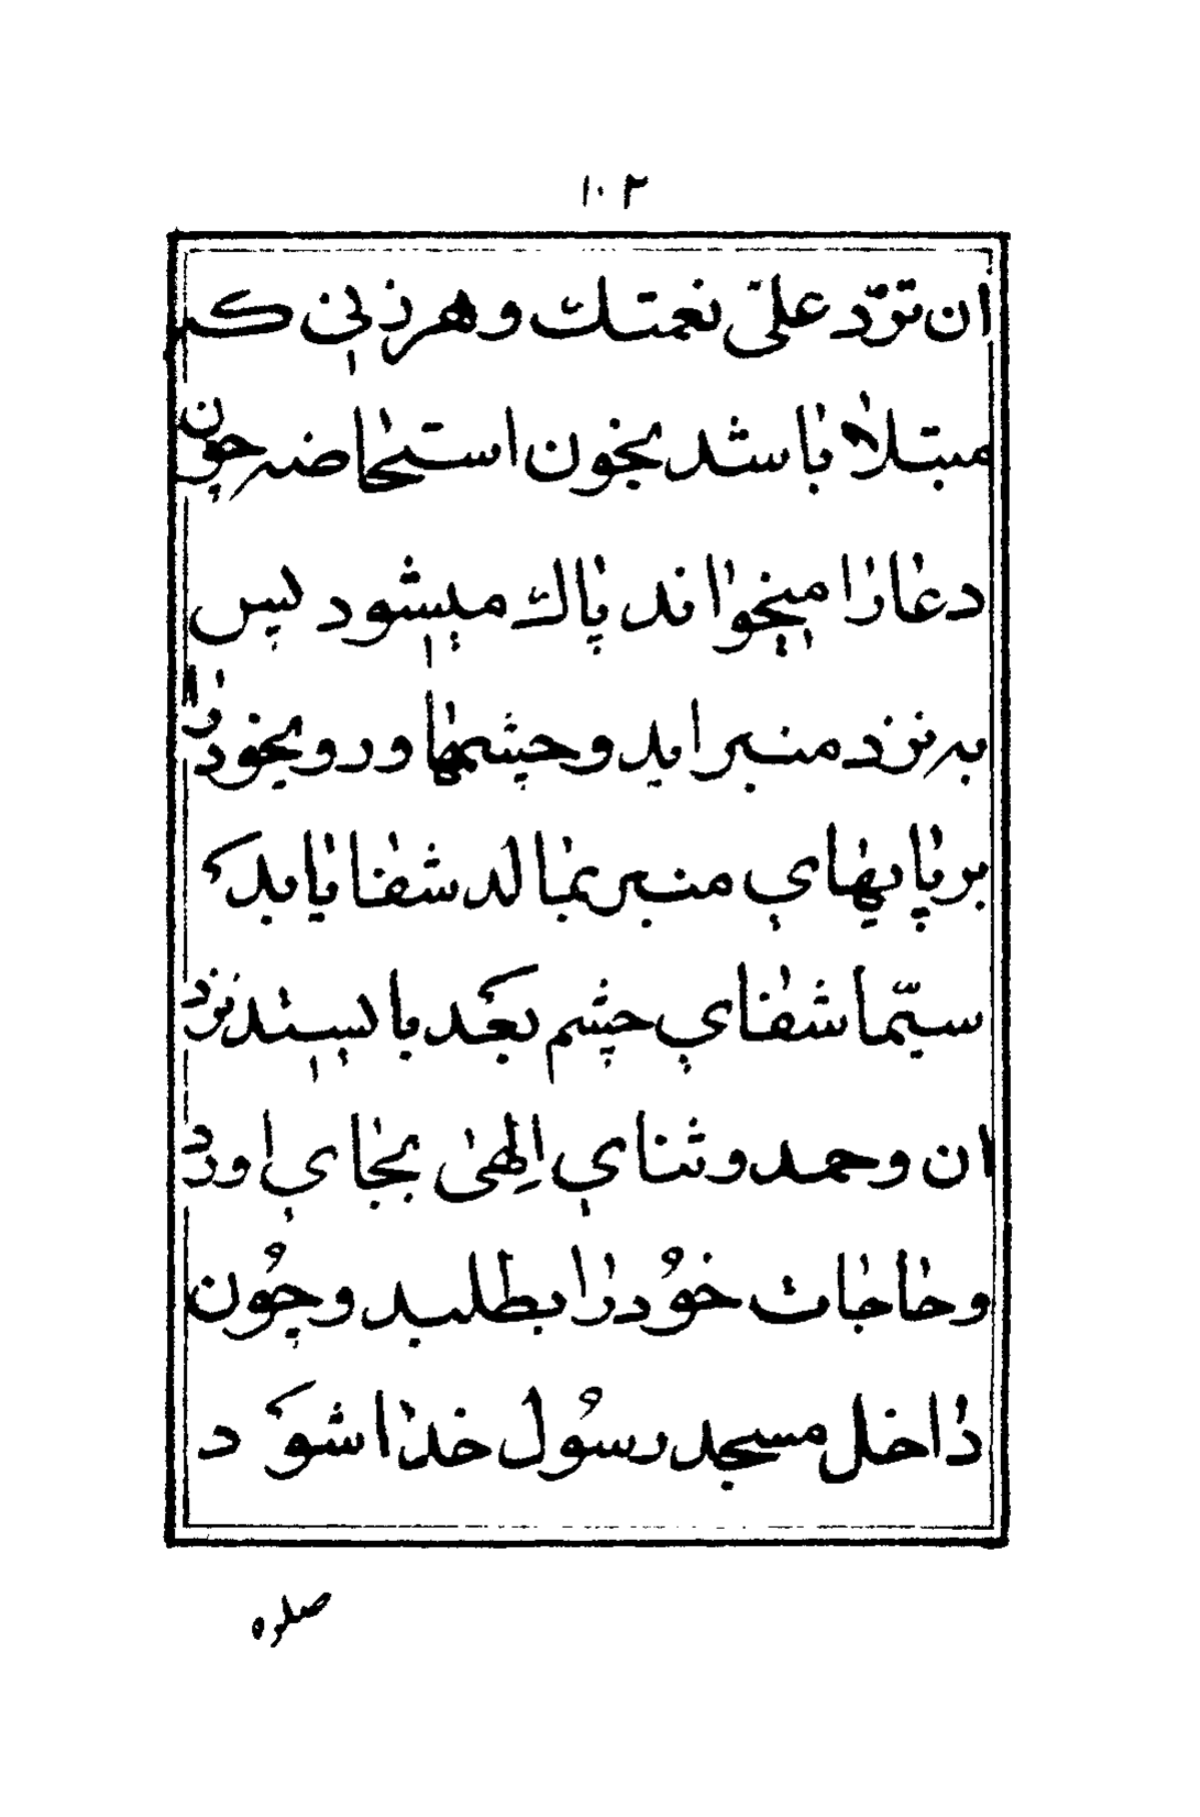 ۱۰۲
ان تردّ علیّ نعمتك وهر زنی که
مبتلا باشد بخون استحاضه چون
دعارا میخواند پاك میشود پس
به نزد منبر اید وچشمها ورو بخودرا
بر پایهای منبر بمالد شفا یابد
سیّما شفای چشم بعد بایستد نزد
ان وحمد وثنای الٰهی بجای اورد
وحاجات خُود را بطلبد وچُون
داخل مسجد رسُول خدا شود
صلوه